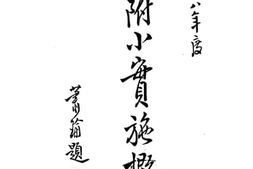 八年度
附小實施概
蕭翁題